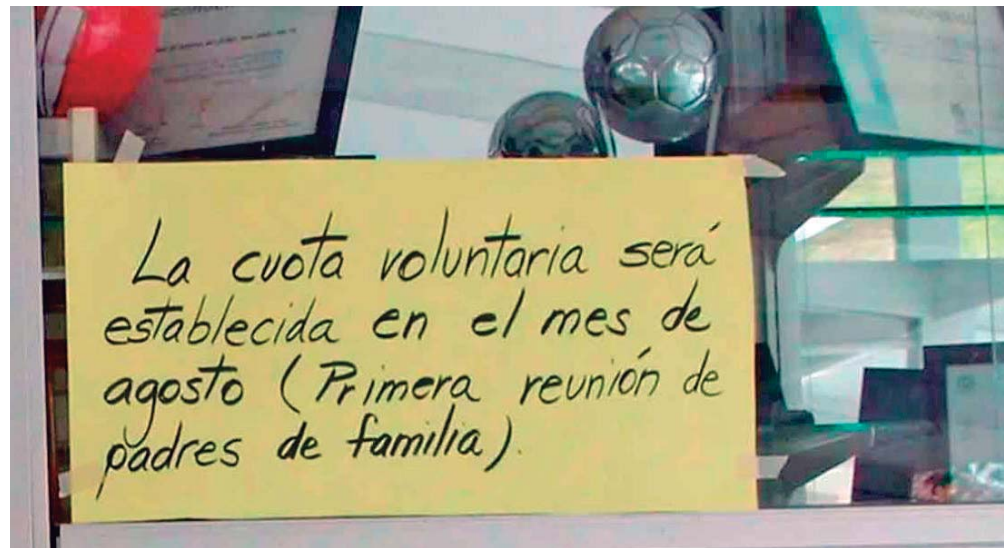 La cuota voluntaria será
establecida en el mes de
agosto (Primera reunión de
padres de familia).